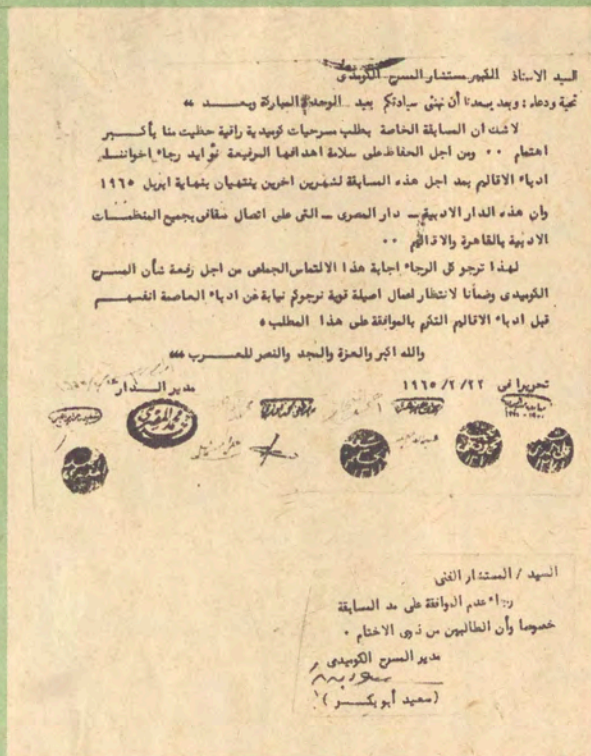 السيد الاستاذ الكبير مستشار المسرح الكوميدى
تحية ودعاء : وبعد يسعدنا أن نهنئ سيادتكم بعيد الوحدة المباركة وبعد ،،
لا شك ان المسابقة الخاصة بطلب مسرحيات كوميدية راقية حظيت منا بأكبر
اهتمام .. ومن اجل الحفاظ على سلامة اهدافها الرفيعة نؤايد رجاء اخواننا
ادباء الاقاليم بمد اجل هذه المسابقة لشهرين اخرين ينتهيان بنهاية ابريل ١٩٦٥
وان هذه الدار الادبية ـ دار المصرى ـ التى على اتصال ثقافى بجميع المنظمات
الادبية بالقاهرة والاقاليم ..
لهذا نرجو كل الرجاء اجابة هذا الالتماس الجماعى من اجل رفعة شأن المسرح
الكوميدى وضمانا لانتظار اعمال اصيلة قوية نرجوكم نيابة عن ادباء العاصمة انفسهم
قبل ادباء الاقاليم التكرم بالموافقة على هذا المطلب ،
والله اكبر والعزة والمجد والنصر للعرب ،،،
تحريرا فى ٢٢/ ٢/ ١٩٦٥ مدير الدار
محمد المصرى
السيد / المستشار الفنى
رجاء عدم الموافقة على مد المسابقة
خصوصا وأن الطالبين من ذوى الاختام .
مدير المسرح الكوميدى
( سعيد أبو بكر )